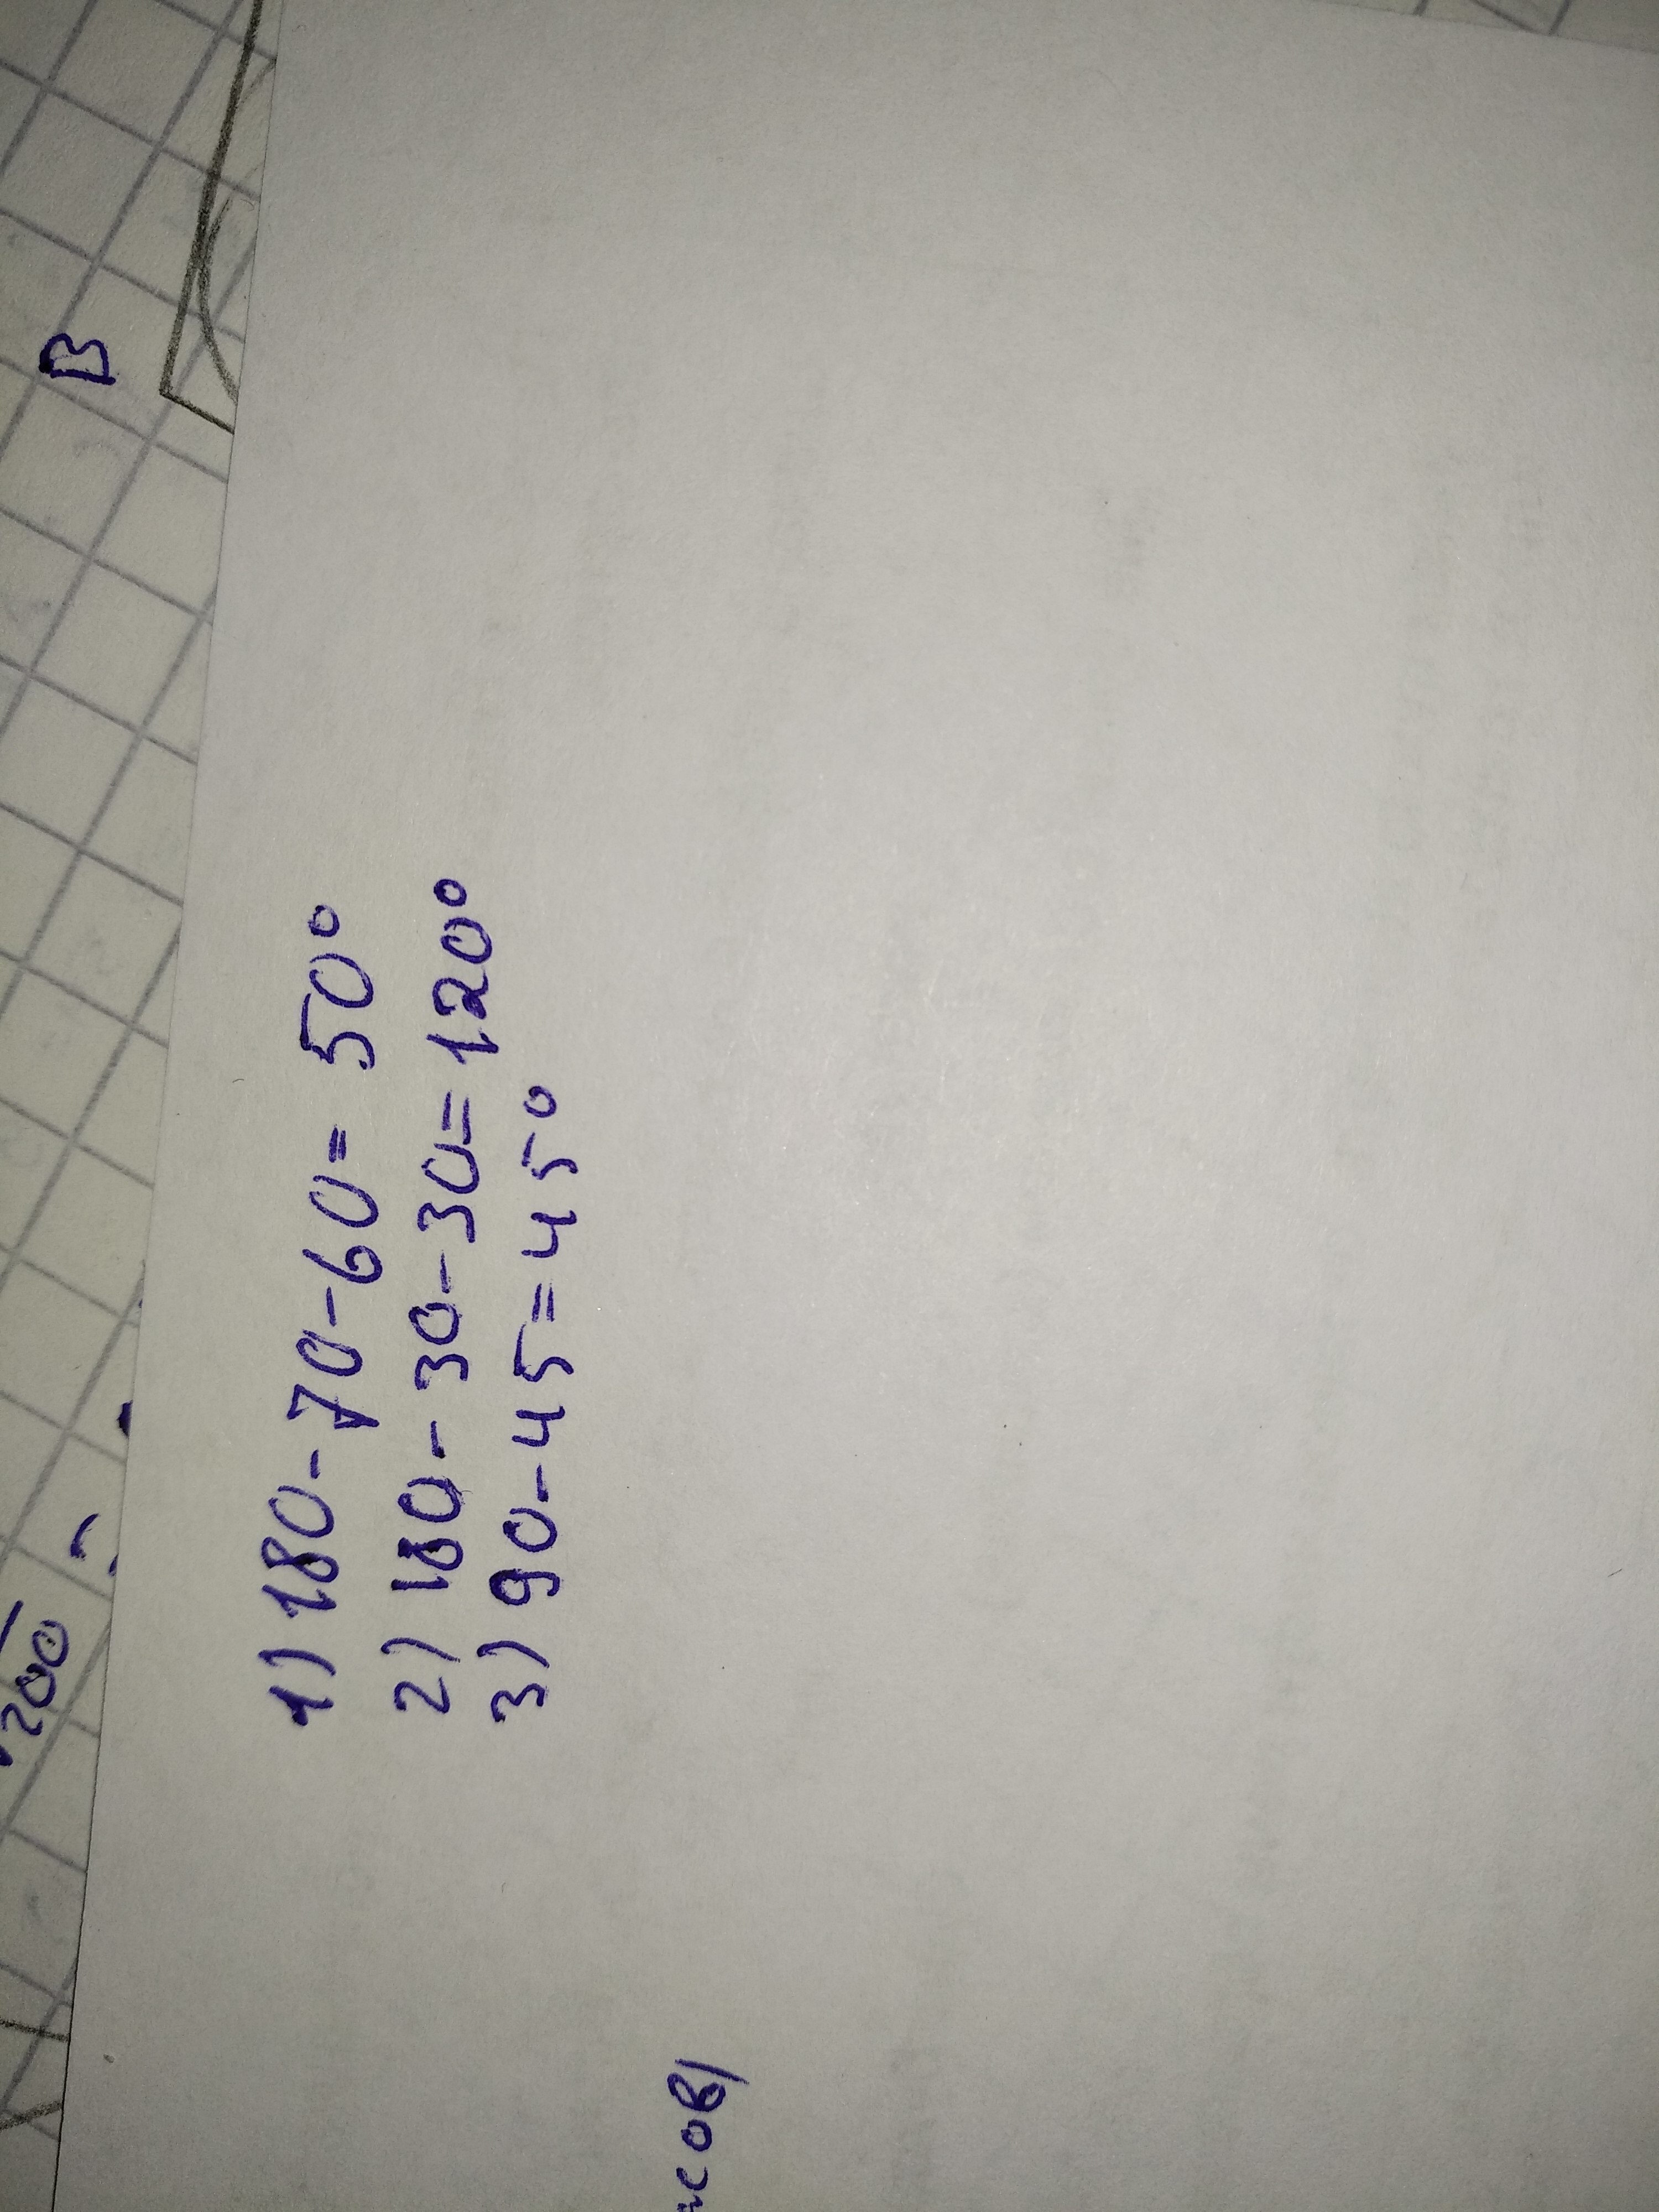 B
200
1) 180-70-60= 50°
2) 180-30-30=120°
3) 90-45=45°